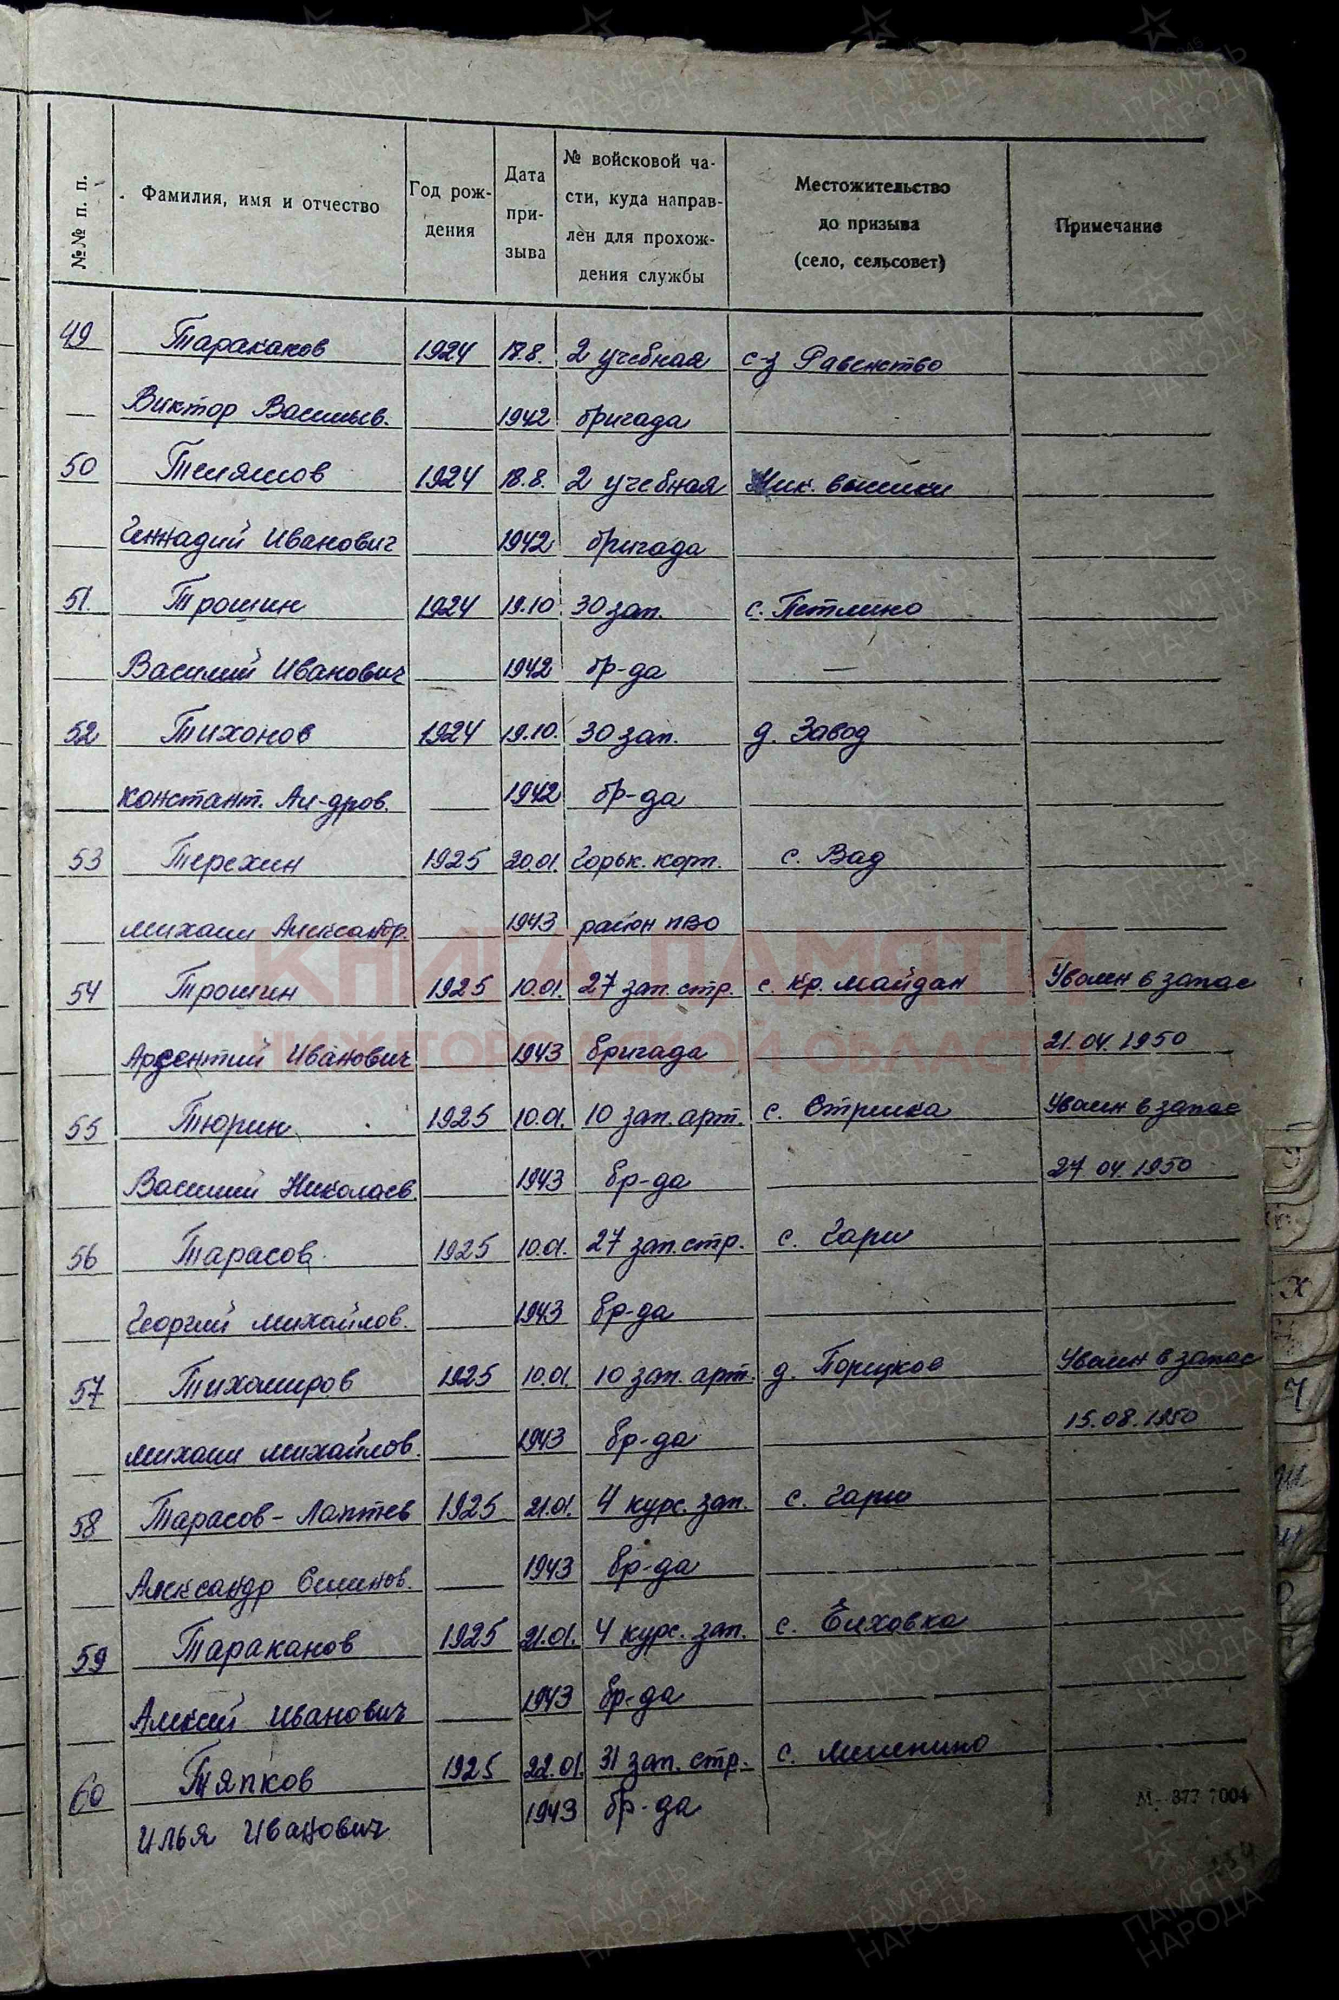 №№ п. п. Фамилия, имя и отчество Год рож- дения Дата при- зыва № войсковой ча- сти, куда направ- лен для прохож- дения службы Местожительство до призыва (село, сельсовет) Примечание
49 Тараканов 1924 18.8. 2 учебная с-з Равенство
Виктор Васильев. 1942 бригада
50 Телятов 1924 18.8. 2 учебная Ник. выселки
Геннадий Иванович 1942 бригада
51. Трошин 1924 19.10. 30 зап. с. Петлино
Василий Иванович 1942 бр-да —
52 Тихонов 1924 19.10. 30 зап. д. Завод
Констант. Ал-дров. 1942 бр-да
53 Терехин 1925 20.01. Горьк. корп. с. Вад
Михаил Александр. 1943 район ПВО
54 Трошин 1925 10.01. 27 зап. стр. с. Кр. Майдан Уволен в запас
Арсентий Иванович 1943 бригада 21.04.1950
55 Тюрин 1925 10.01. 10 зап. арт. с. Стрелка Уволен в запас
Василий Николаев. 1943 бр-да 27 04.1950
56 Тарасов 1925 10.01. 27 зап. стр. с. Гари
Георгий Михайлов. 1943 бр-да
57 Тихомиров 1925 10.01. 10 зап. арт. д. Порецкое Уволен в запас
Михаил Михайлов. 1943 бр-да 15.08.1950
58 Тарасов-Лаптев 1925 21.01. 4 курс. зап. с. Гари
Александр Семенов. 1943 бр-да
59 Тараканов 1925 21.01. 4 курс. зап. с. Елховка
Алексей Иванович 1943 бр-да
60 Тяпков 1925 22.01. 31 зап. стр. с. Меленино
Илья Иванович 1943 бр-да
М-377 7004
КНИГА ПАМЯТИ
НИЖЕГОРОДСКОЙ ОБЛАСТИ
ПАМЯТЬ
НАРОДА